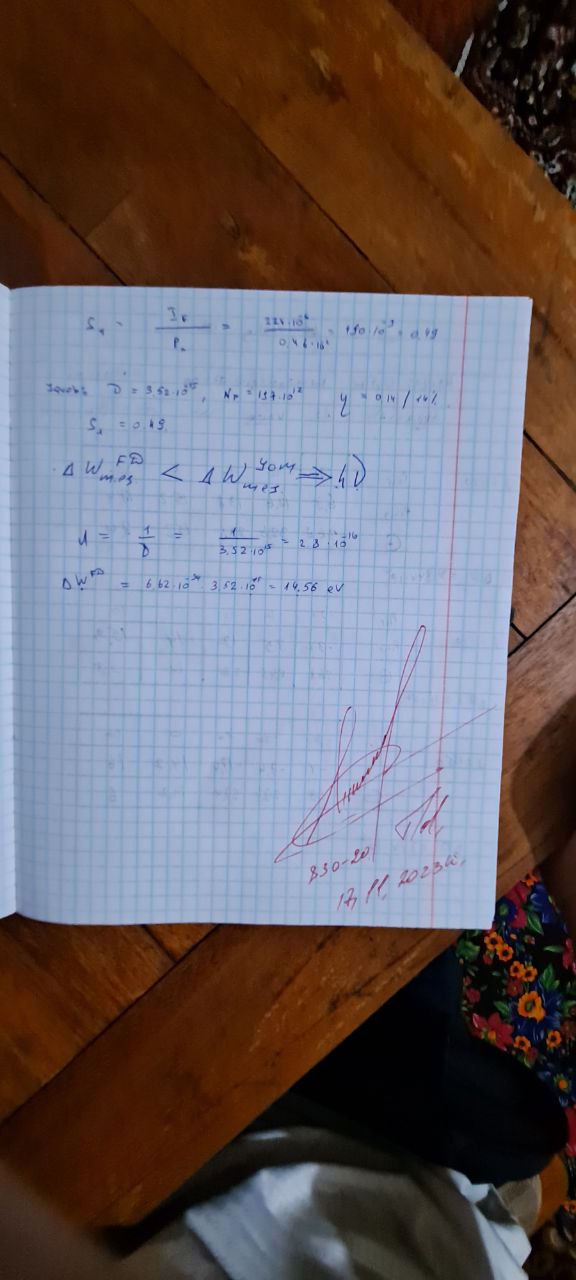 Sλ = Iф / Pλ = 224·10⁻⁶ / 0,46·10⁻³ = 490·10⁻³ = 0,49
Javob: D = 3,52·10¹⁵, Nₚ = 197·10¹², η = 0,14 / 14%.
Sλ = 0,49.
ΔW FD < ΔW yom => hν
λ = 1/ν = 1 / 3,52·10¹⁵ = 2,8·10⁻¹⁶
ΔW FD = 6,62·10⁻³⁴ · 3,52·10¹⁵ = 14,56 eV
830-20
17.11.2023